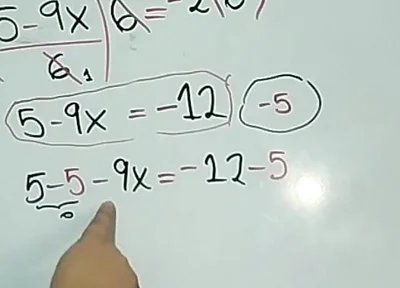 5-9x 6 = -2(6)
6 1
5-9x = -12 -5
5-5-9x=-12-5
0